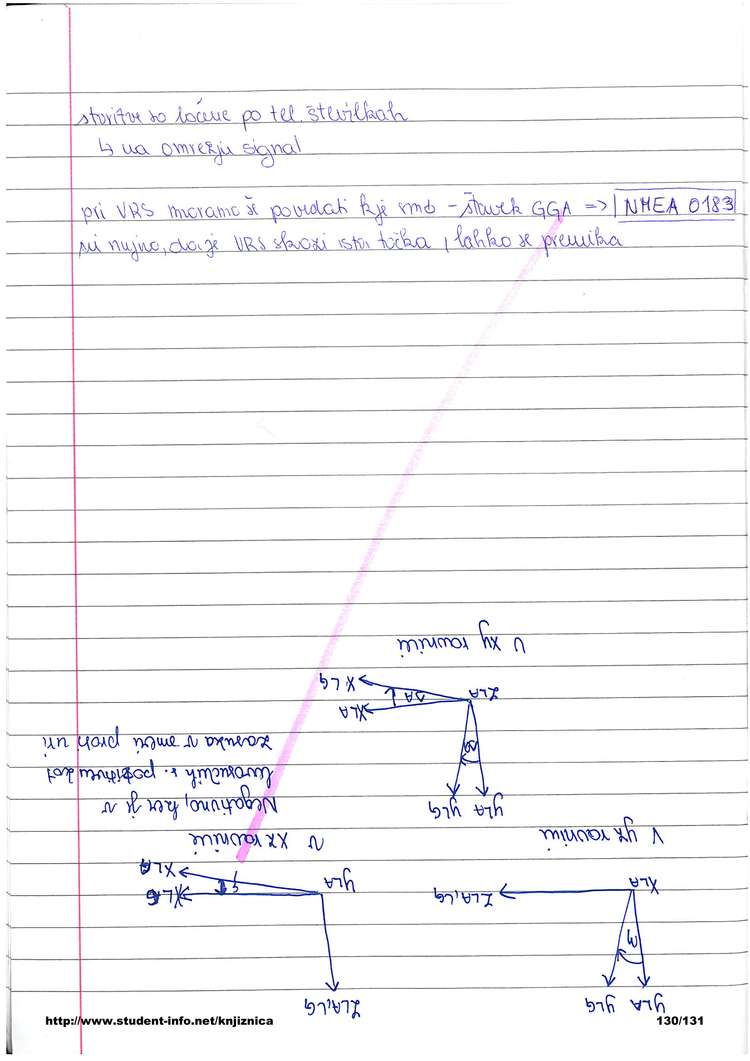 storitve so ločene po tel. številkah
↳ na omrežju signal
pri VRS moramo še povedati kje smo - stavek GGA => NMEA 0183
ni nujno, da je VRS skozi ista točka, lahko se premika
U xy ravnini
XLG
ΔA
XLA
ZLA
YLA YLG
Negativno, ker je v
levosučnih s. pozitiven kot
zasuka v smeri proti uri
V yz ravnini
XLA
ZLA,LG
YLA YLG
V xz ravnini
XLA
YLA
ZLA,LG
http://www.student-info.net/knjiznica
130/131